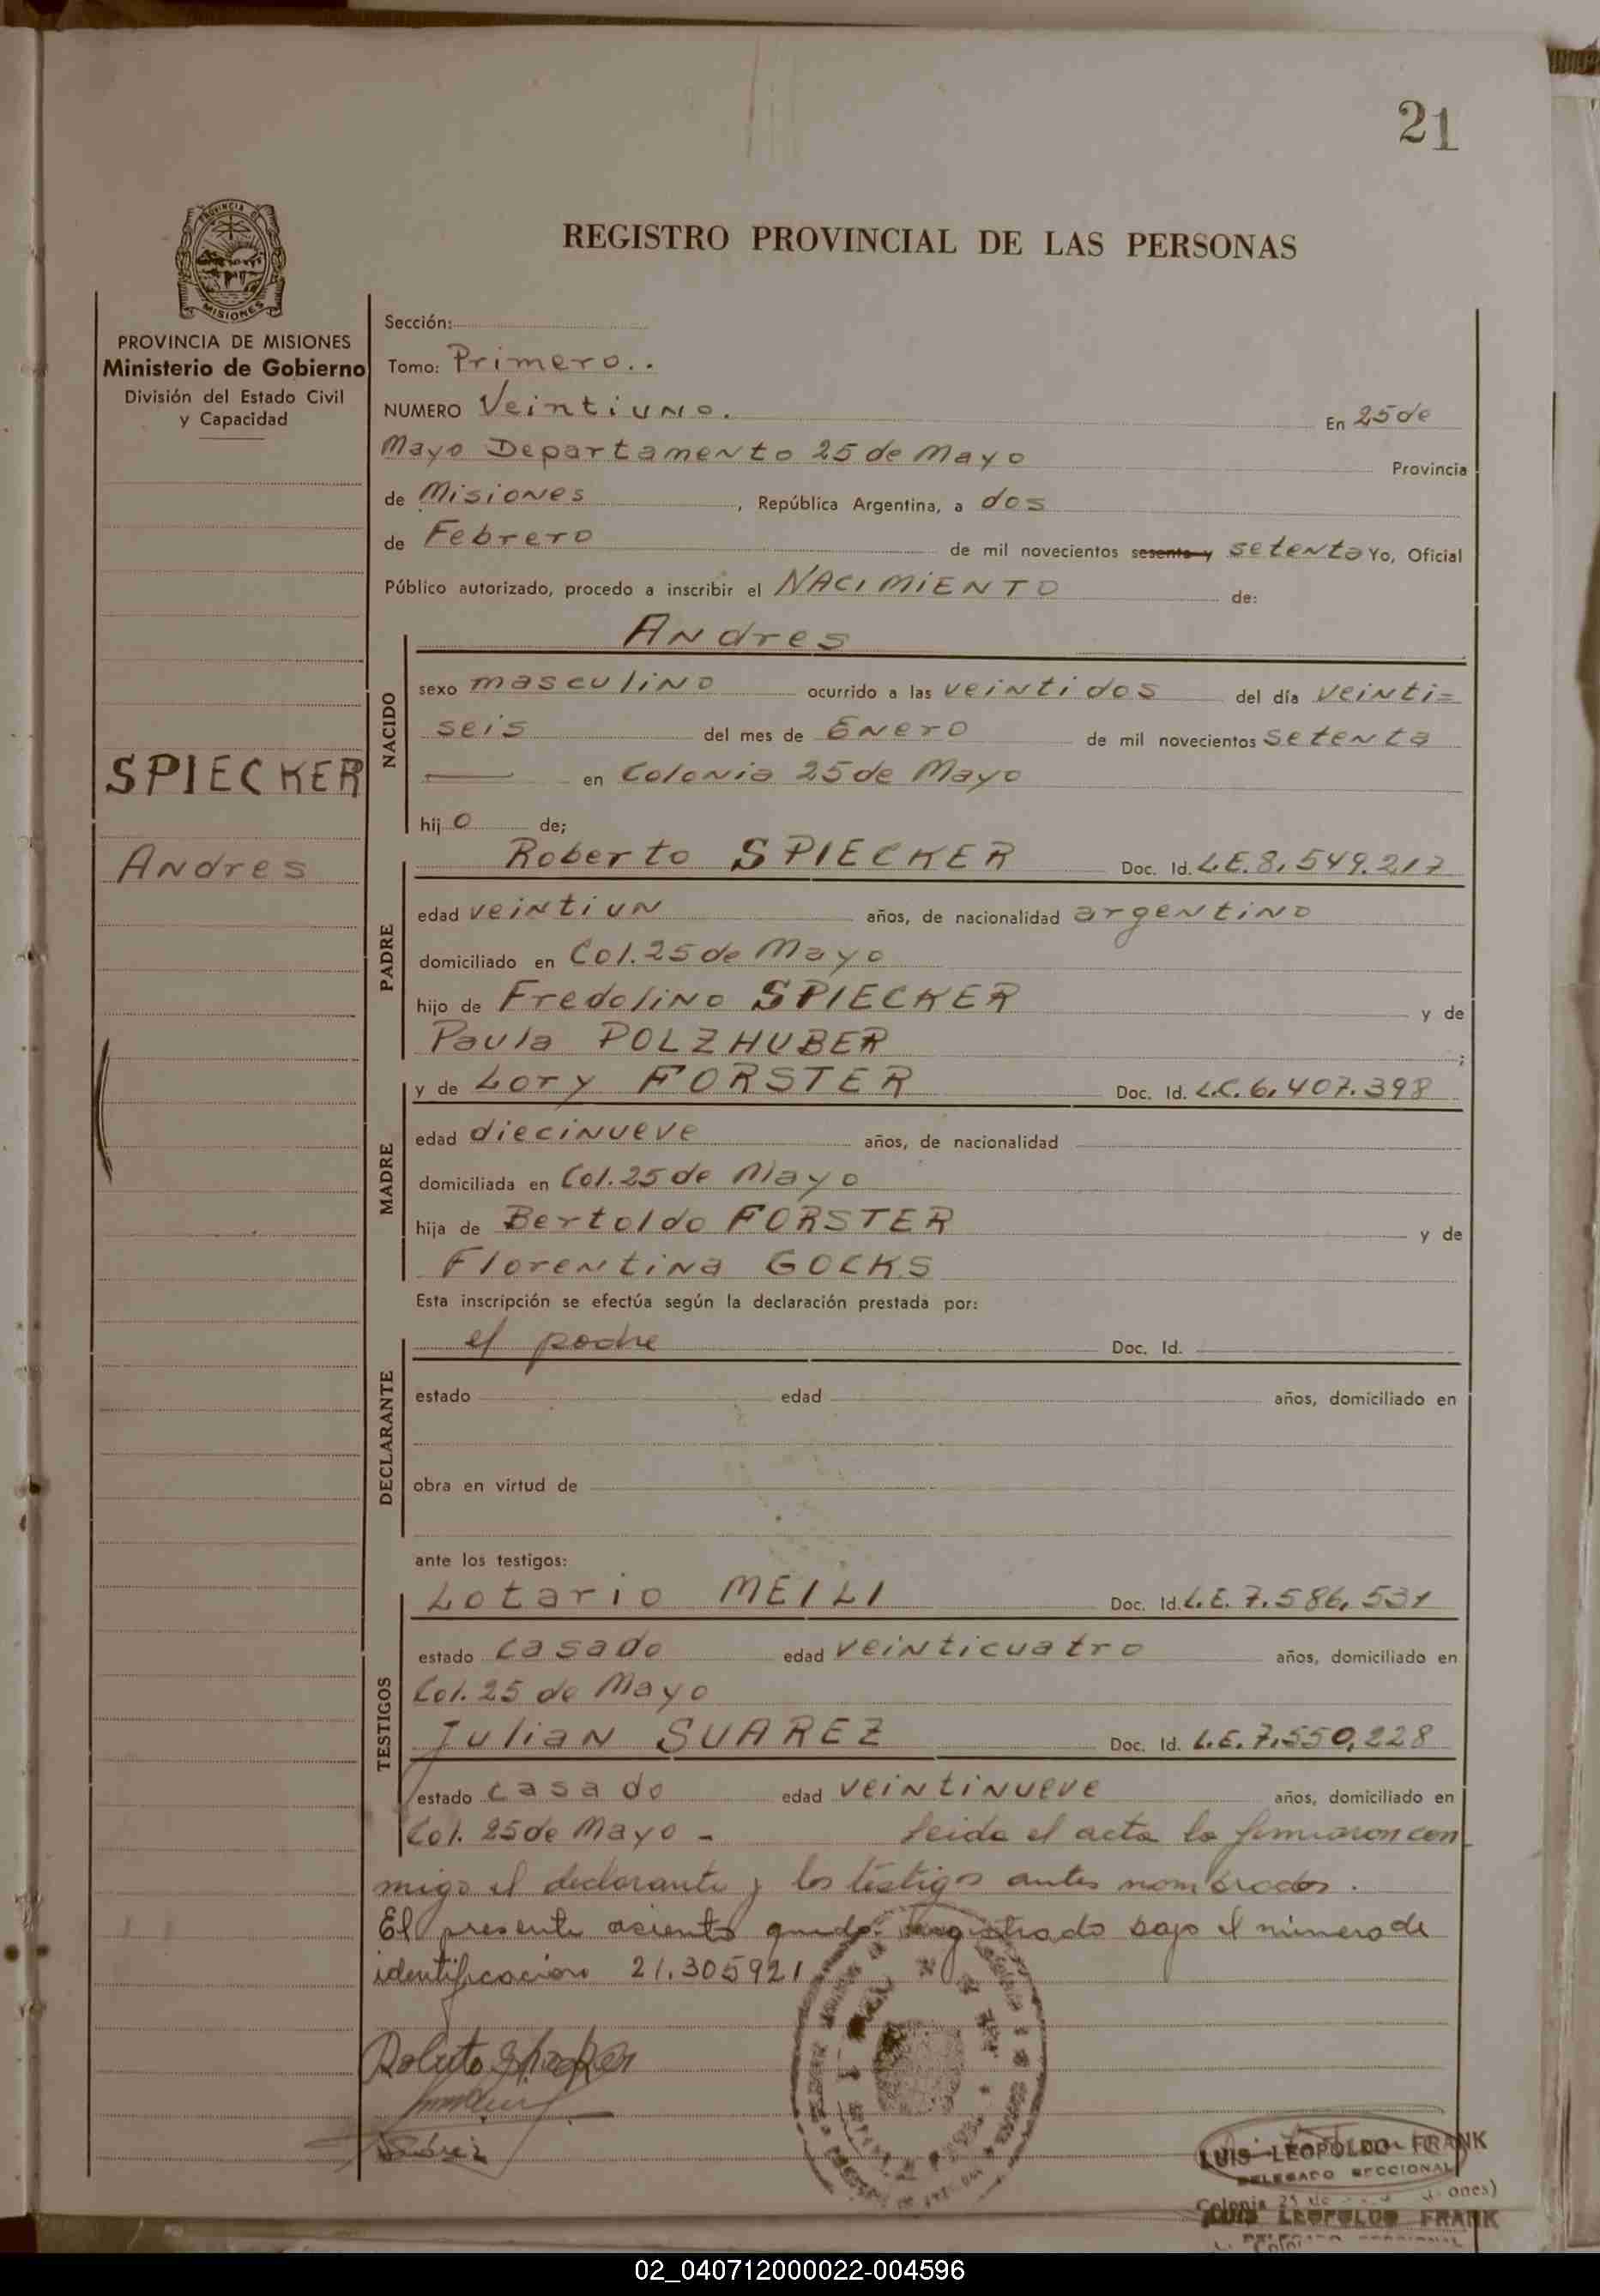 21
PROVINCIA DE
MISIONES
REGISTRO PROVINCIAL DE LAS PERSONAS
PROVINCIA DE MISIONES
Ministerio de Gobierno
División del Estado Civil
y Capacidad
SPIECKER
Andres
Sección:
Tomo: Primero..
NUMERO Veintiuno. En 25 de
Mayo Departamento 25 de Mayo Provincia
de Misiones, República Argentina, a dos
de Febrero de mil novecientos sesenta y setenta Yo, Oficial
Público autorizado, procedo a inscribir el NACIMIENTO de:
NACIDO
Andres
sexo masculino ocurrido a las veintidos del día veinti=
seis del mes de Enero de mil novecientos setenta
en Colonia 25 de Mayo
hijo de;
PADRE
Roberto SPIECKER Doc. Id. L.E. 8.549.217
edad veintiun años, de nacionalidad argentino
domiciliado en Col. 25 de Mayo
hijo de Fredolino SPIECKER y de
Paula POLZHUBER ;
MADRE
y de Lory FORSTER Doc. Id. L.C. 6.407.398
edad diecinueve años, de nacionalidad
domiciliada en Col. 25 de Mayo
hija de Bertoldo FORSTER y de
Florentina GOCKS
Esta inscripción se efectúa según la declaración prestada por:
DECLARANTE
el padre Doc. Id.
estado edad años, domiciliado en
obra en virtud de
ante los testigos:
TESTIGOS
Lotario MEILI Doc. Id. L.E. 7.586.531
estado casado edad veinticuatro años, domiciliado en
Col. 25 de Mayo
Julian SUAREZ Doc. Id. L.E. 7.550.228
estado casado edad veintinueve años, domiciliado en
Col. 25 de Mayo - Leida el acta la firmaron con
migo el declarante y los testigos antes nombrados.
El presente asiento queda registrado bajo el número de
identificacion 21.305921
Roberto Spiecker
Suárez
LUIS LEOPOLDO FRANK
DELEGADO SECCIONAL
Colonia 25 de
LUIS LEOPOLDO FRANK
02_040712000022-004596